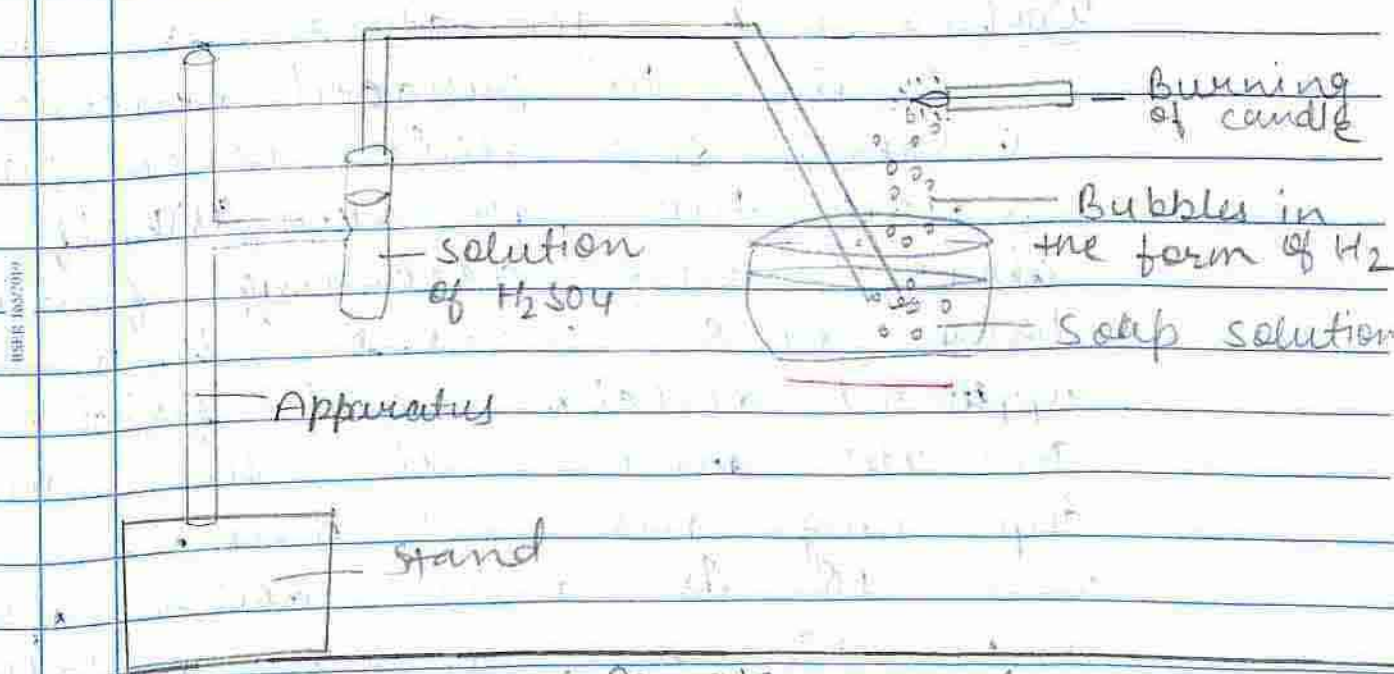 Burning
of candle
Bubbles in
the form of H2
solution
of H2SO4
Soap solution
Apparatus
Stand